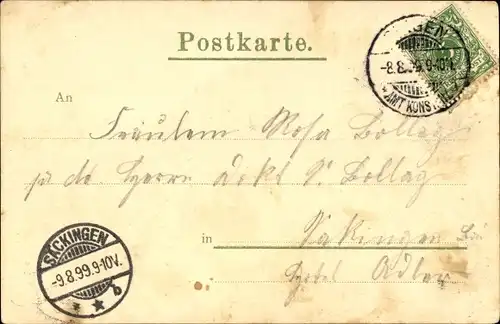 Postkarte.
SINGEN
-8.8.99.9-10V.
* AMT KONST
An
Fräulein Rosa Bollag
Herrn Bollag
in Säkingen
Hotel Adler
SÄCKINGEN
-9.8.99.9-10V.
* * b